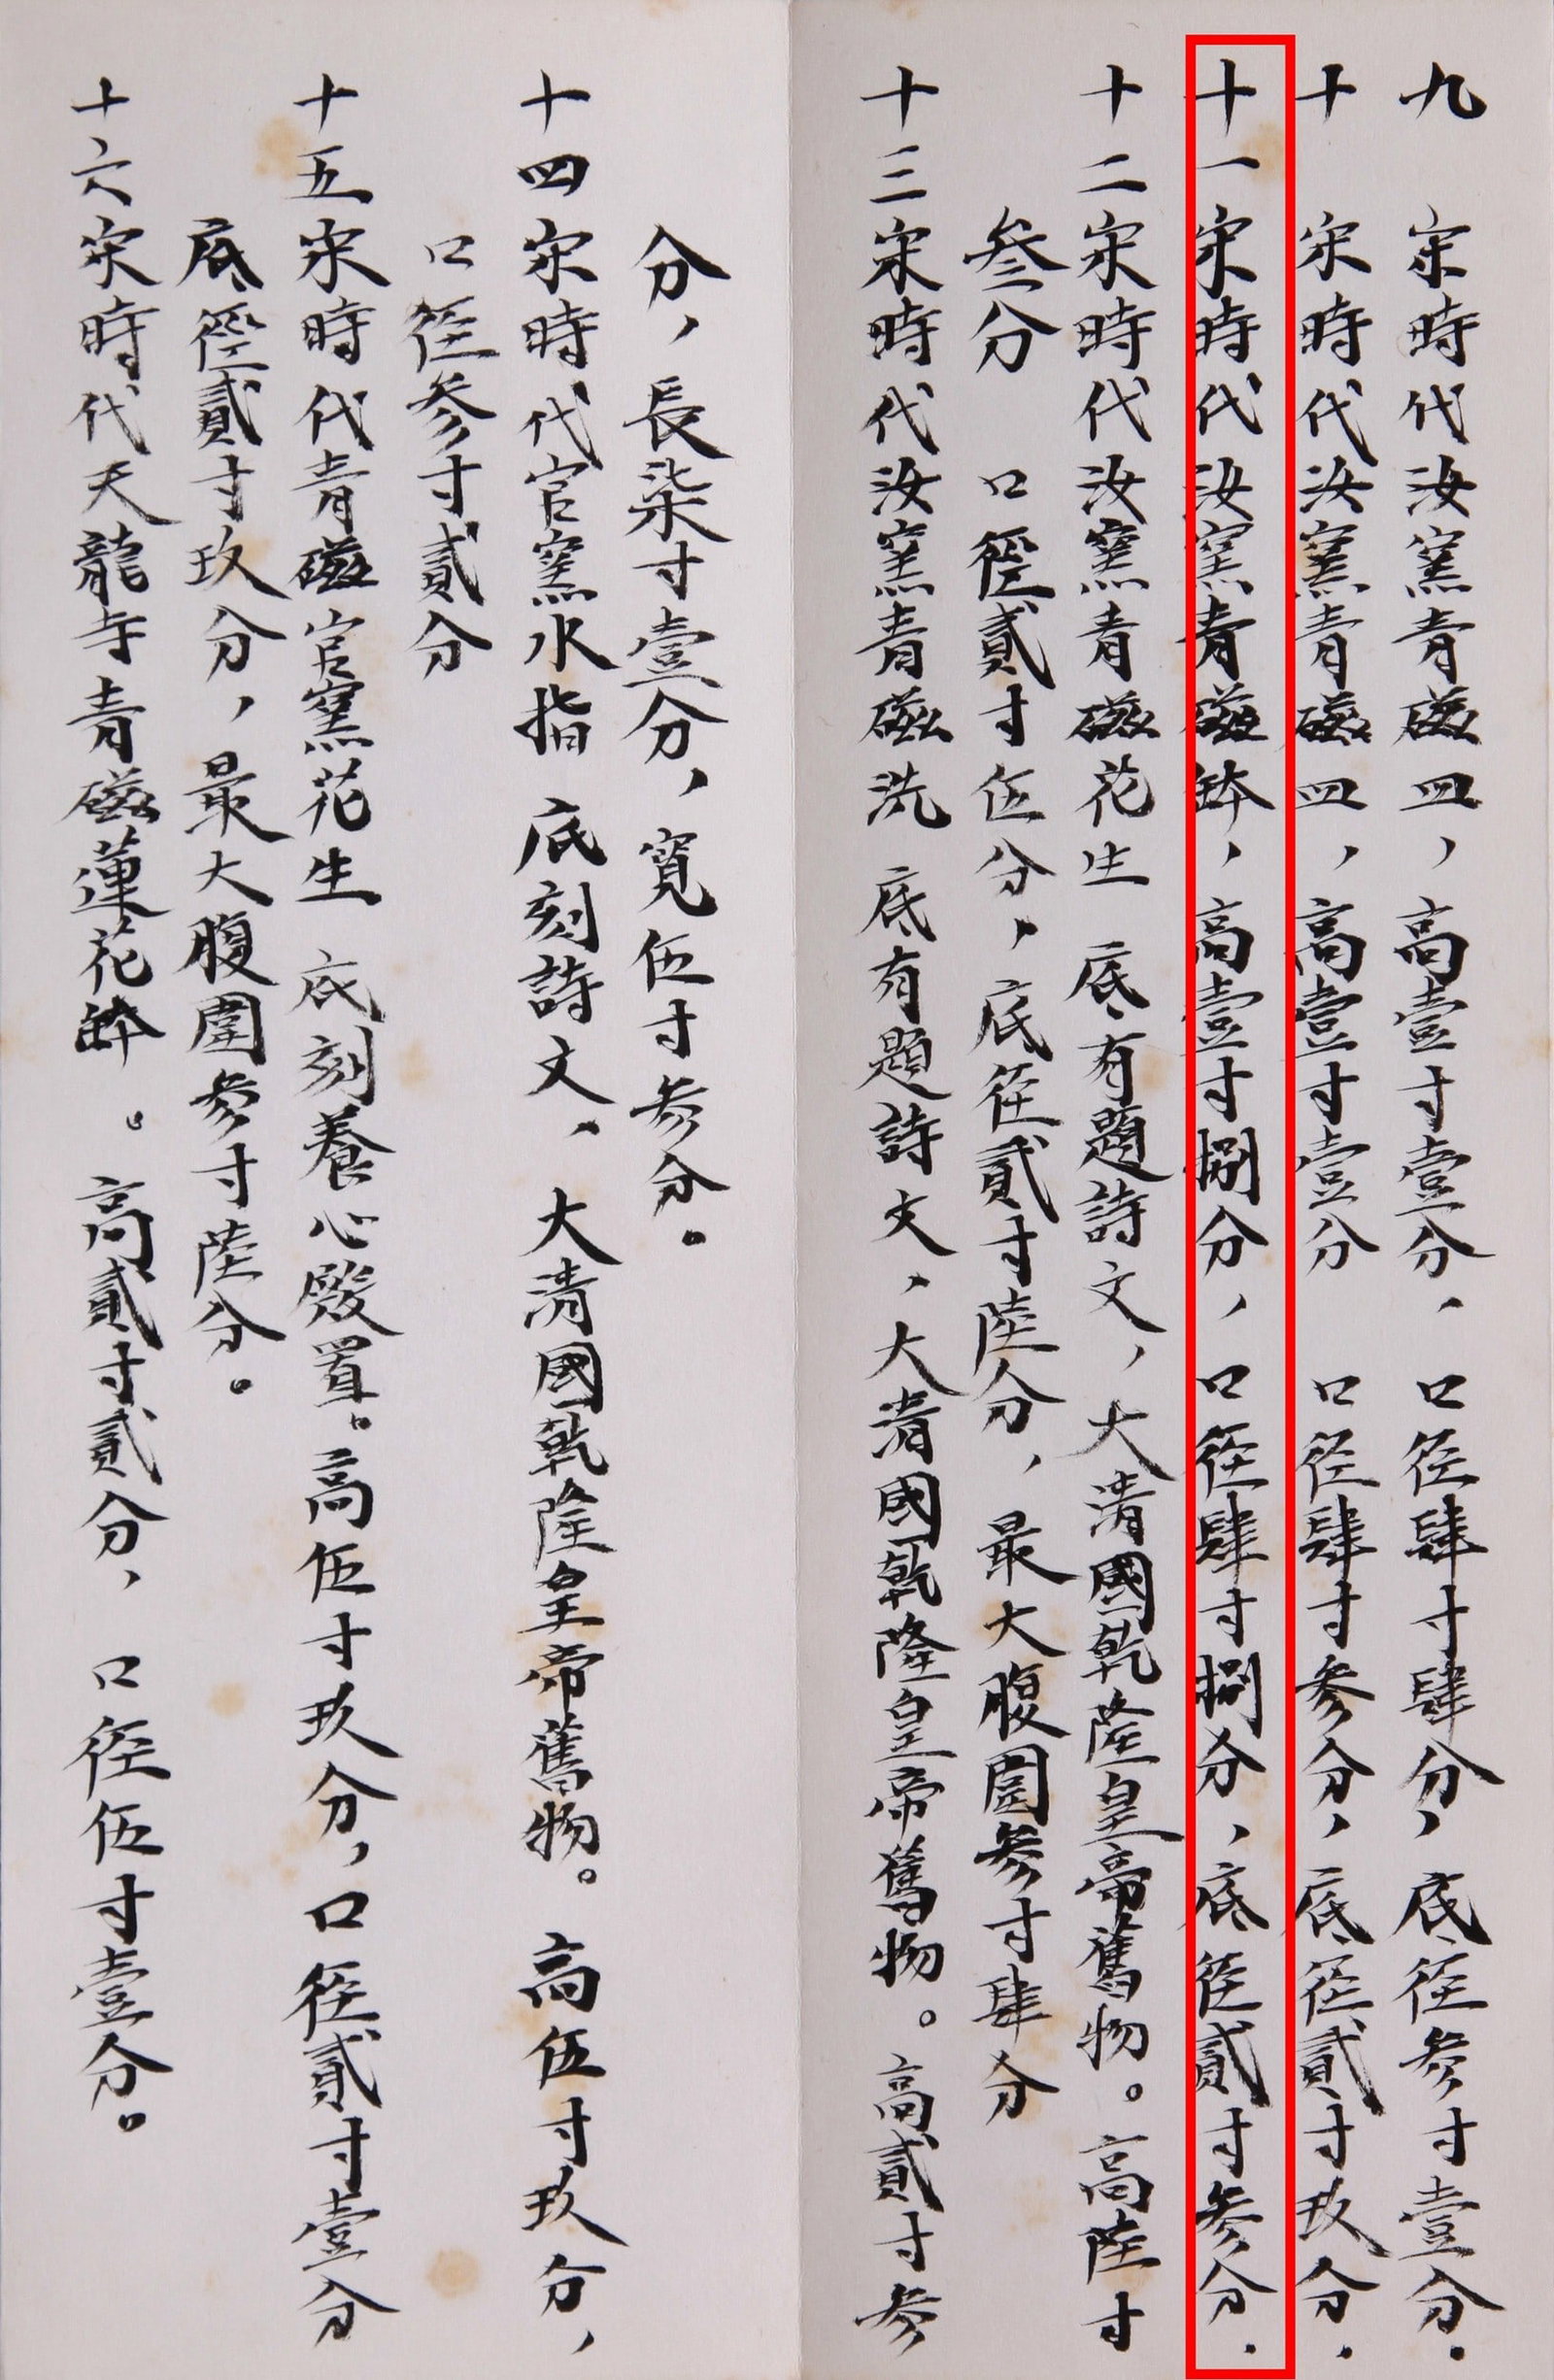 九 宋時代汝窯青磁皿，高壹寸壹分，口径肆寸肆分，底径参寸壹分．
十 宋時代汝窯青磁皿，高壹寸壹分 口径肆寸参分，底径貳寸玖分．
十一宋時代汝窯青磁鉢，高壹寸捌分，口径肆寸捌分，底径貳寸参分．
十二宋時代汝窯青磁花生 底有題詩文，大清國乾隆皇帝舊物。高陸寸
叁分 口徑貳寸伍分，底径貳寸陸分，最大腹圍参寸肆分
十三宋時代汝窯青磁洗 底有題詩文，大清國乾隆皇帝舊物。高貳寸参
分，長柒寸壹分，寬伍寸参分。
十四宋時代官窯水指 底刻詩文，大清國乾隆皇帝舊物。高伍寸玖分，
口径参寸貳分
十五宋時代青磁官窯花生 底刻養心殿置。高伍寸玖分，口径貳寸壹分
底徑貳寸玖分，最大腹圍参寸陸分。
十六宋時代天龍寺青磁蓮花鉢。高貳寸貳分，口径伍寸壹分。